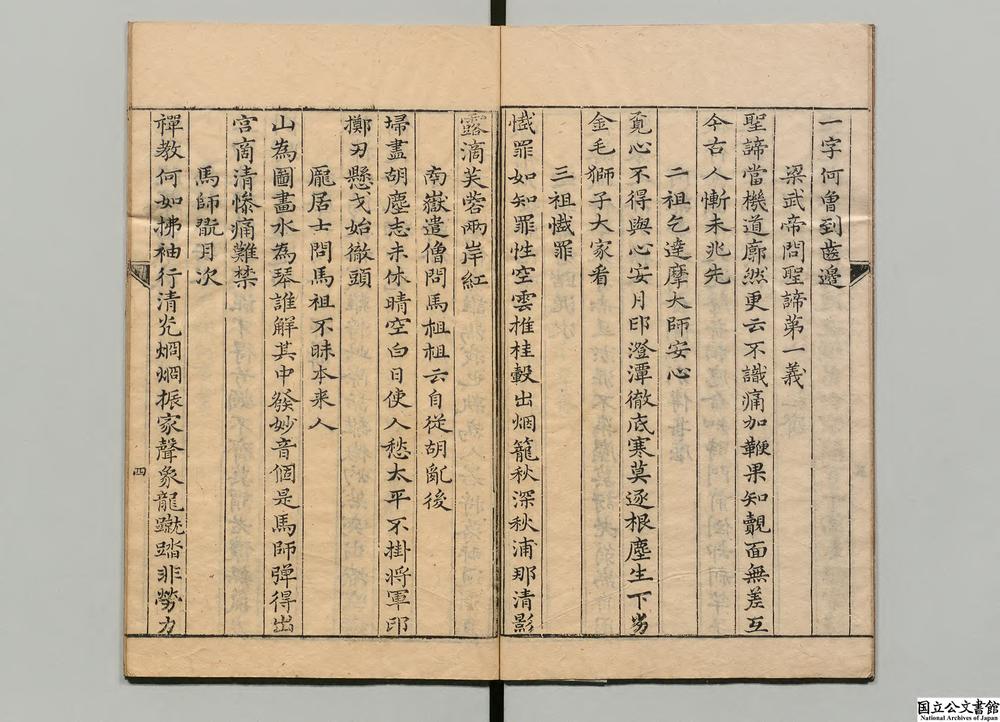 一字何曾到齒邊
梁武帝問聖諦第一義
聖諦當機道廓然更云不識痛加鞭果知覿面無差互
今古人慚未兆先
二祖乞達摩大師安心
覔心不得與心安月印澄潭徹底寒莫逐根塵生下劣
金毛獅子大家看
三祖懺罪
懺罪如知罪性空雲推桂轂出烟籠秋深秋浦那清影
露滴芙蓉兩岸紅
南嶽遣僧問馬祖祖云自從胡亂後
埽盡胡塵志未休晴空白日使人愁太平不掛將軍印
擲刃懸戈始徹頭
龐居士問馬祖不昧本來人
山為圖畫水為琴誰解其中發妙音個是馬師彈得出
宮商清慘痛難禁
馬師翫月次
禪教何如拂袖行清光烱烱振家聲象龍蹴踏非勞力
四
国立公文書館
National Archives of Japan